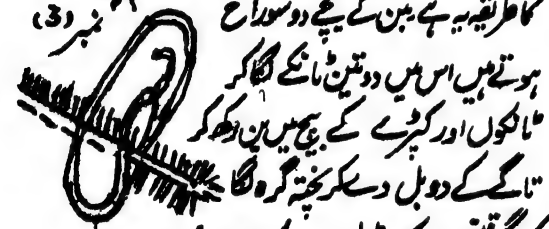 نمبر (3)
کا طریقہ یہ ہے پین کے نیچے دو سوراخ
ہوتے ہیں اس میں دو تین ٹانکے لگا کر
ٹانکوں اور کپڑے کے بیچ میں پن رکھ کر
تاگے کے دو بل دے کر پختہ گرہ لگا